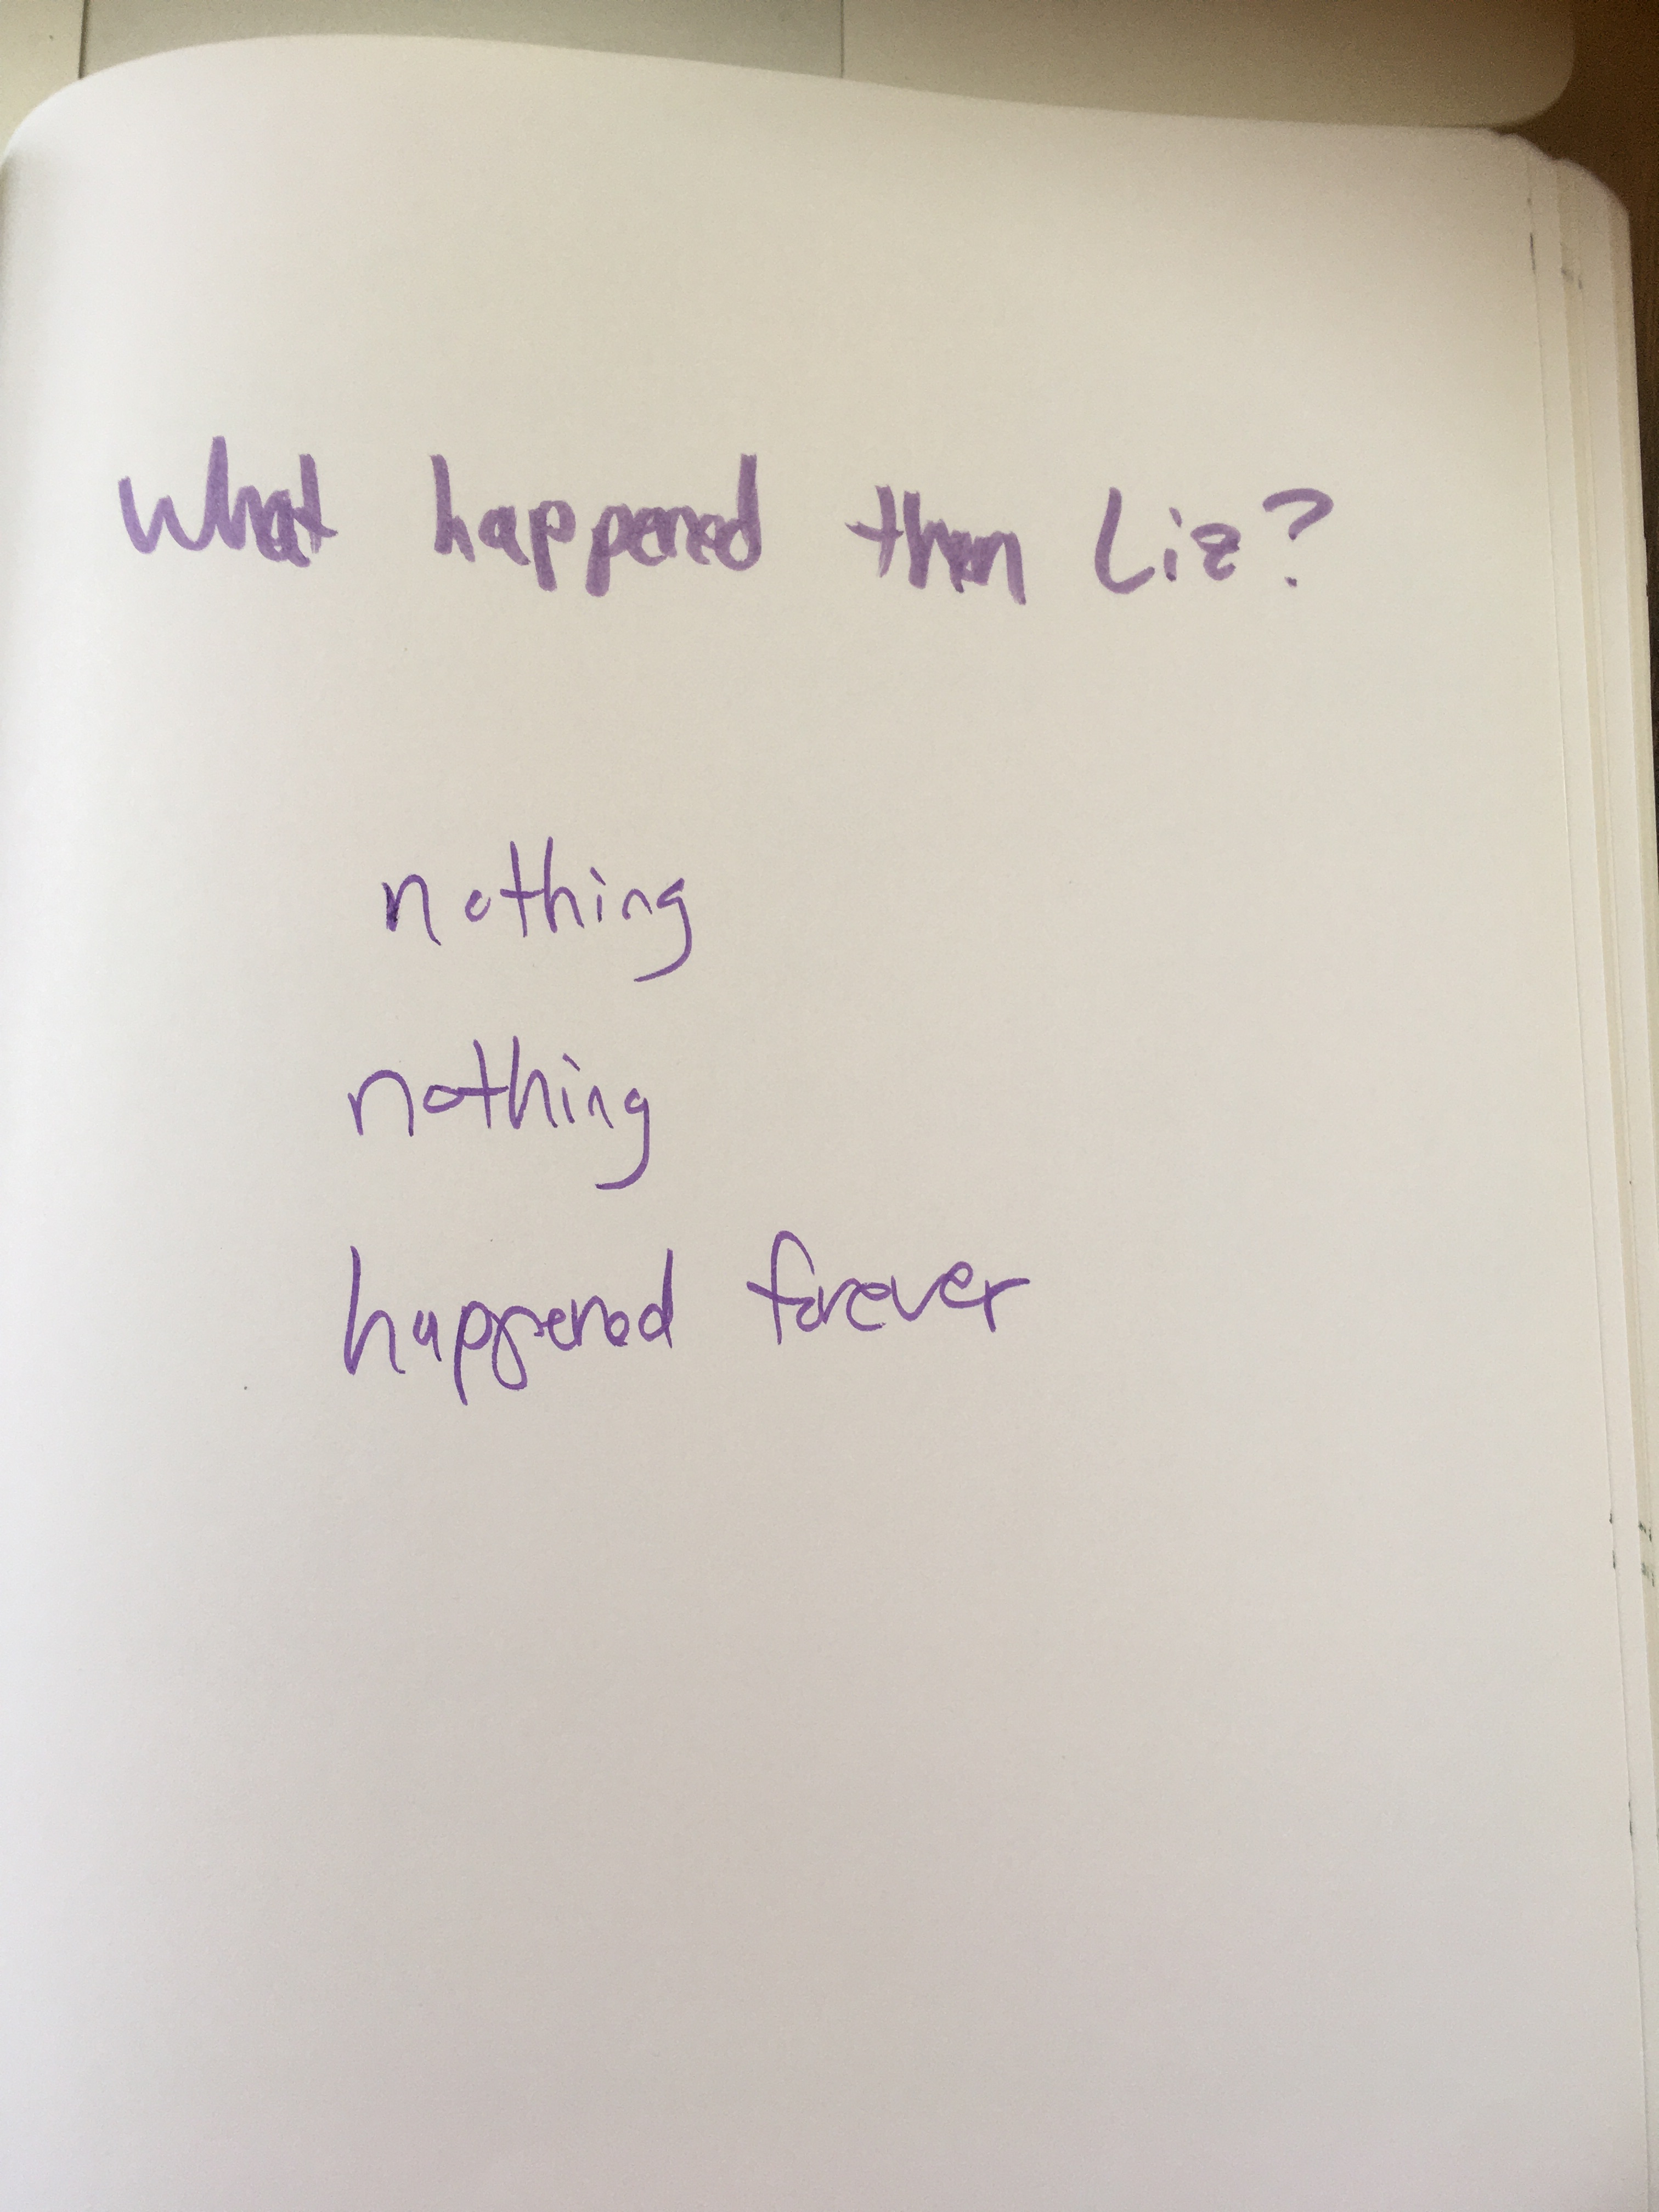 What happened then Liz?
nothing
nothing
happened forever